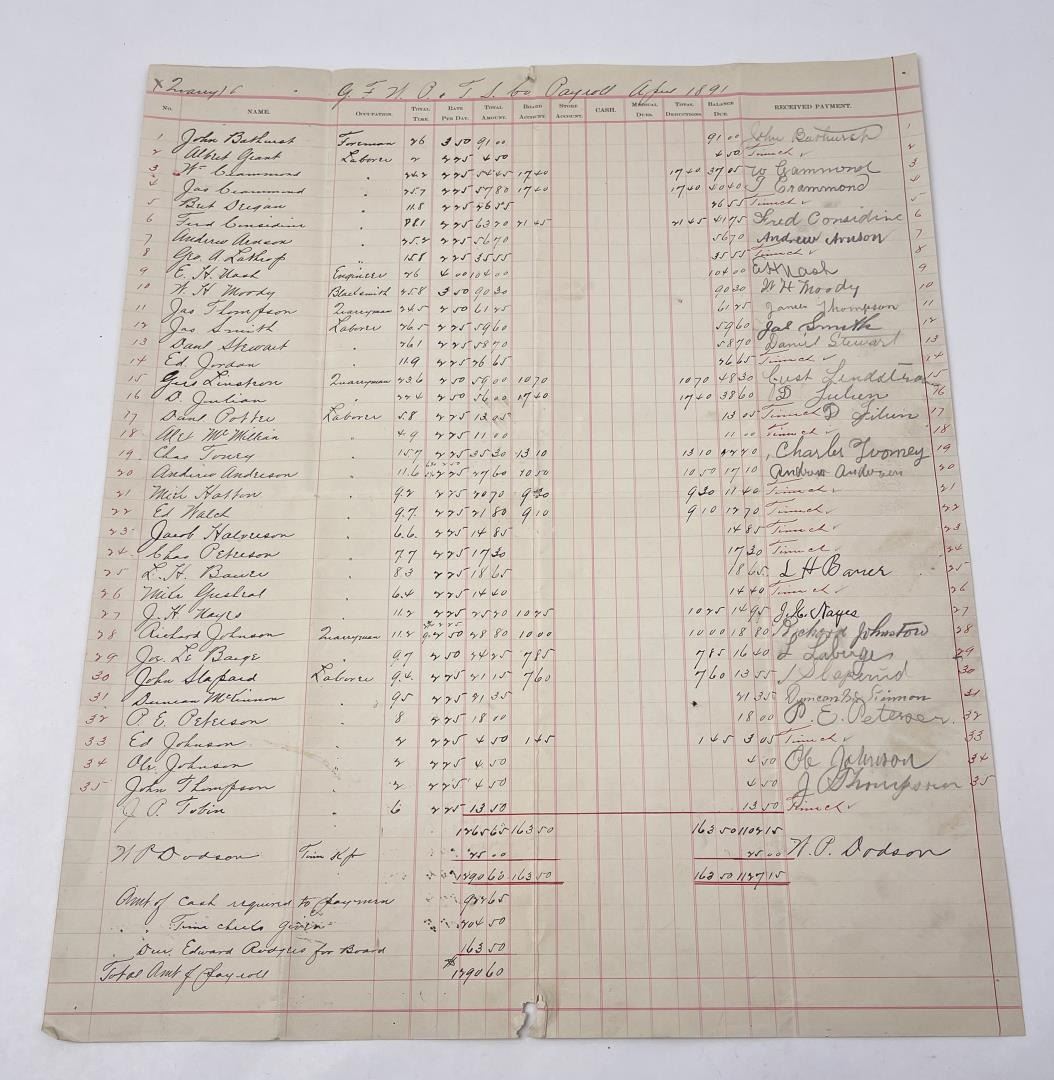 Quarry 16 G F W. P. & T. S. Co Payroll April 1891
No. NAME. OCCUPATION. TOTAL TIME. RATE PER DAY. TOTAL AMOUNT. BOARD ACCOUNT. STORE ACCOUNT. CASH. MEDICAL DUES. TOTAL DEDUCTIONS. BALANCE DUE. RECEIVED PAYMENT.
1 John Bathurst Foreman 26 3 50 91 00 91 00 John Bathurst 1
2 Albert Grant Laborer 2 2 25 4 50 4 50 Time ch ✓ 2
3 Wm Crammond " 24.2 2 25 54 45 17 40 17 40 37 05 W Cammond 3
4 Jas Crammond " 25.7 2 25 57 80 17 40 17 40 40 40 J Crammond 4
5 Bert Deigan " 11.8 2 25 26 55 26 55 Time ch ✓ 5
6 Fred Considine " 28.1 2 25 63 20 21 45 21 45 41 75 Fred Considine 6
7 Andrew " 25.2 2 25 56 70 56 70 Andrew 7
8 Geo. A Lathrop " 15.8 2 25 35 55 35 55 Time ch ✓ 8
9 E. H. Nash Engineer 26 4 00 104 00 104 00 E H Nash 9
10 W. H Moody Blacksmith 25.8 3 50 90 30 90 30 W H Moody 10
11 Jas Thompson Quarryman 24.5 2 50 61 25 61 25 James Thompson 11
12 Jas Smith Laborer 26.5 2 25 59 60 59 60 Jas Smith 12
13 Danl Stewart " 26.1 2 25 58 70 58 70 Daniel Stewart 13
14 Ed Jordan " 11.9 2 25 26 65 26 65 Time ch ✓ 14
15 Gus Linstron Quarryman 23.6 2 50 59 00 10 70 10 70 48 30 Gust Linddstrom 15
16 D. Julian " 22.4 2 50 56 00 17 40 17 40 38 60 D Julien 16
17 Danl Potter Laborer 5.8 2 25 13 05 13 05 Time ch D Julien 17
18 Alex McMillan " 4.9 2 25 11 00 11 00 Time ch ✓ 18
19 Chas " 15.7 2 25 35 30 13 10 13 10 22 20 Charles Twomey 19
20 Andrew Anderson " 11.6 2 25 27 60 10 50 10 50 17 10 Andrew Anderson 20
21 Mich Hatton " 9.2 2 25 20 70 9 30 9 30 11 40 Time ch ✓ 21
22 Ed Walch " 9.7 2 25 21 80 9 10 9 10 12 70 Time ch ✓ 22
23 Jacob Halverson " 6.6 2 25 14 85 14 85 Time ch ✓ 23
24 Chas Peterson " 7.7 2 25 17 30 17 30 Time ch ✓ 24
25 L. H. Bauer " 8 3 2 25 18 65 18 65 L H Bauer 25
26 Mike " 6.4 2 25 14 40 14 40 Time ch ✓ 26
27 J. H Hayes " 11.2 2 25 25 20 10 25 10 25 14 95 J. H. Hayes 27
28 Richard Johnson Quarryman 11.2 2 50 28 80 10 00 10 00 18 80 Richard Johnston 28
29 Jos. Le Barge " 9.7 2 50 24 25 7 85 7 85 16 40 L Laberges 29
30 John Slapard Laborer 9.4 2 25 21 15 7 60 7 60 13 55 J Slapernd 30
31 Duncan McKinnon " 9 5 2 25 21 35 21 35 Duncan Mc Kinnon 31
32 P. E. Peterson " 8 2 25 18 00 18 00 P. E. Peterson 32
33 Ed Johnson " 2 2 25 4 50 1 45 1 45 3 05 Time ch ✓ 33
34 Ole Johnson " 2 2 25 4 50 4 50 Ole Johnson 34
35 John Thompson " 2 2 25 4 50 4 50 J Thompson 35
J P. Tobin " 6 2 25 13 50 13 50 Time ch ✓
1265 65 163 50 163 50 1102 15
W P Dodson Time Kpr 25 00 25 00 W. P. Dodson
1290 65 163 50 163 50 1127 15
Amt of Cash required to pay men 922 65
" " Time checks given 204 50
Due Edward Rodgers for Board 163 50
Total Amt of payroll $ 1290 60